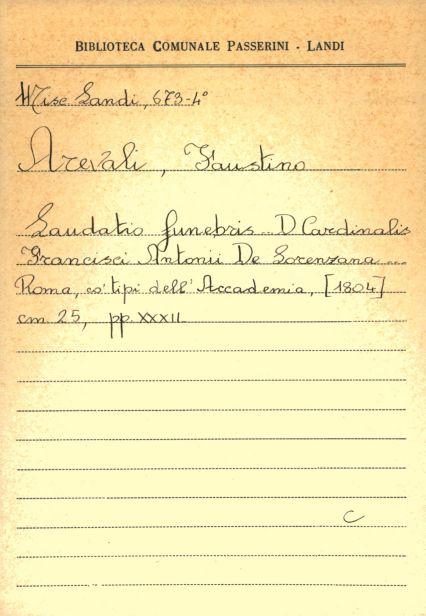 BIBLIOTECA COMUNALE PASSERINI - LANDI
Misc Landi, 673-4°
Arevali, Faustino
Laudatio funebris .. D Cardinalis
Francisci Antonii De Lorenzana ...
Roma, co' tipi dell' Accademia, [1804]
cm 25, pp. XXXII
C